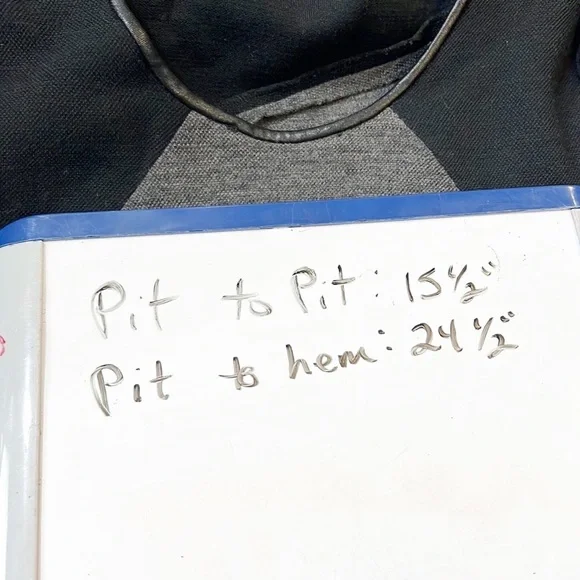 Pit to Pit: 15 1/2"
Pit to hem: 24 1/2"